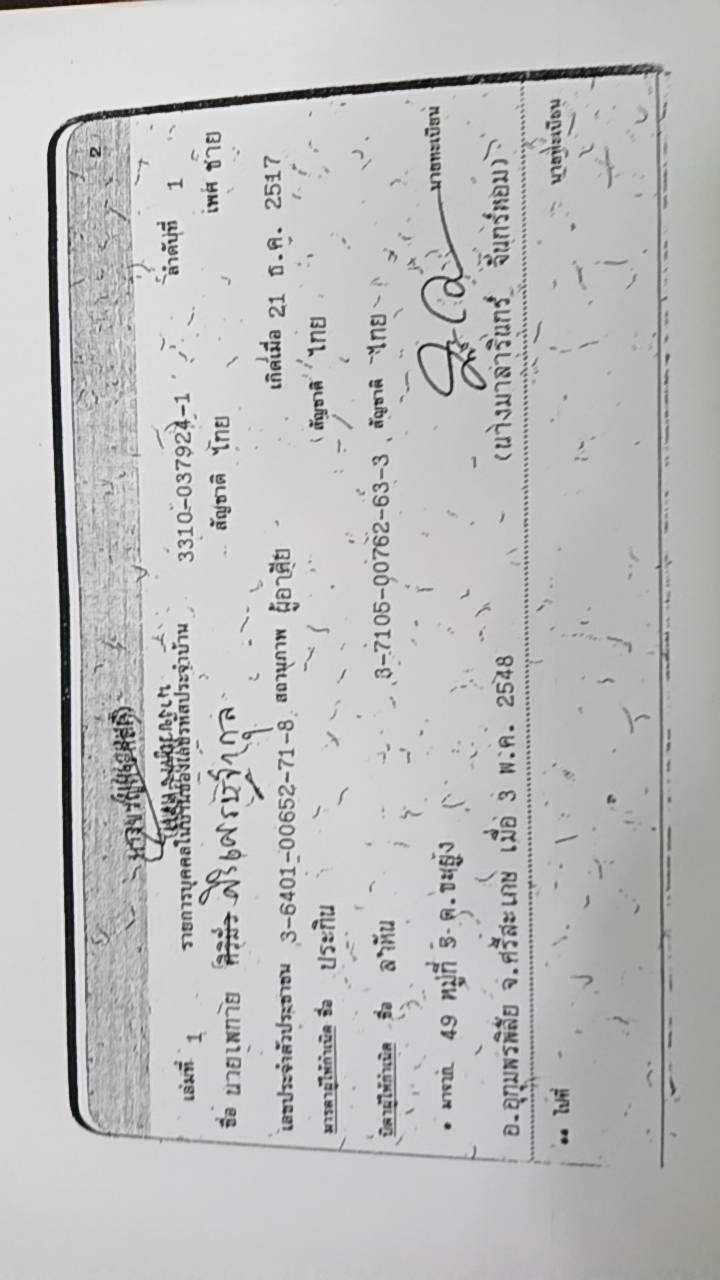 2
เล่มที่ 1 รายการบุคคลในบ้านของเลขรหัสประจำบ้าน 3310-037924-1 ลำดับที่ 1
ชื่อ นายไพฑาย สัญชาติ ไทย เพศ ชาย
เลขประจำตัวประชาชน 3-6401-00652-71-8 สถานภาพ ผู้อาศัย เกิดเมื่อ 21 ธ.ค. 2517
มารดาผู้ให้กำเนิด ชื่อ ประกิน สัญชาติ ไทย
บิดาผู้ให้กำเนิด ชื่อ ลาหัน 3-7105-00762-63-3 สัญชาติ ไทย
* มาจาก 49 หมู่ที่ 5 ต.ขะยูง นายทะเบียน
อ.อุทุมพรพิสัย จ.ศรีสะเกษ เมื่อ 3 พ.ค. 2548 (นางมาลารินทร์ จันทร์หอม)
** ไปที่ นายทะเบียน